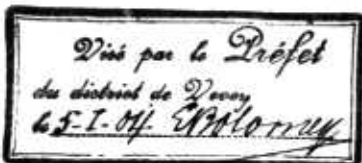 Visé par le Préfet
du district de Vevey
le 5-I-04. EBolomey